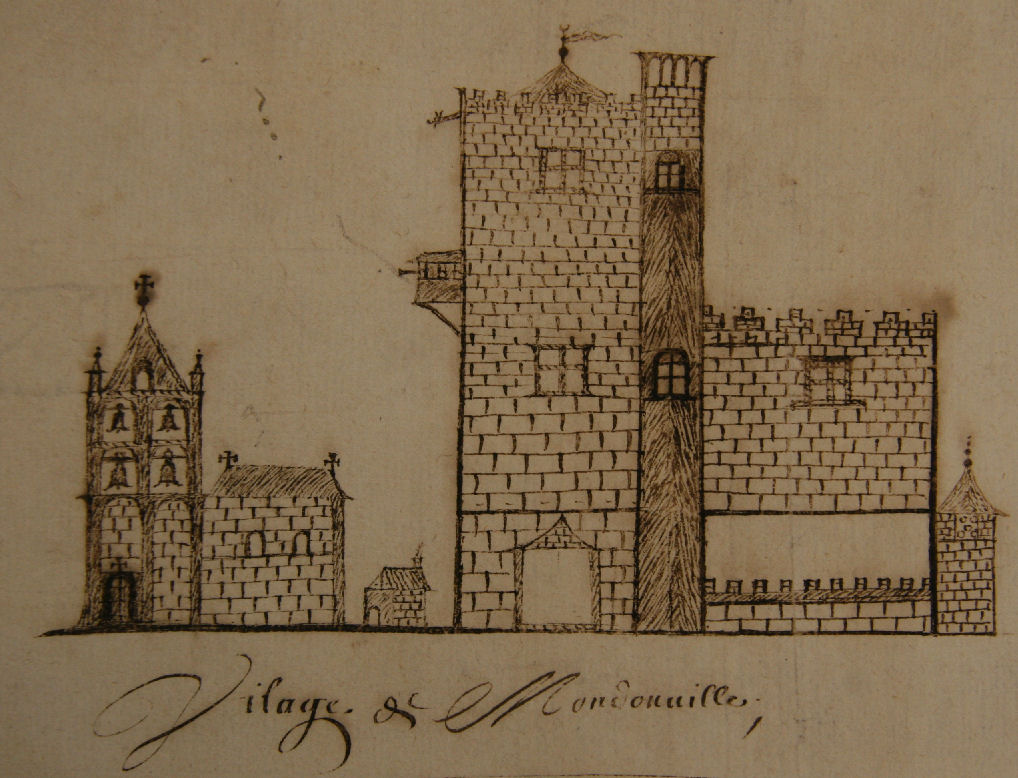 Vilage de Mondonuille,